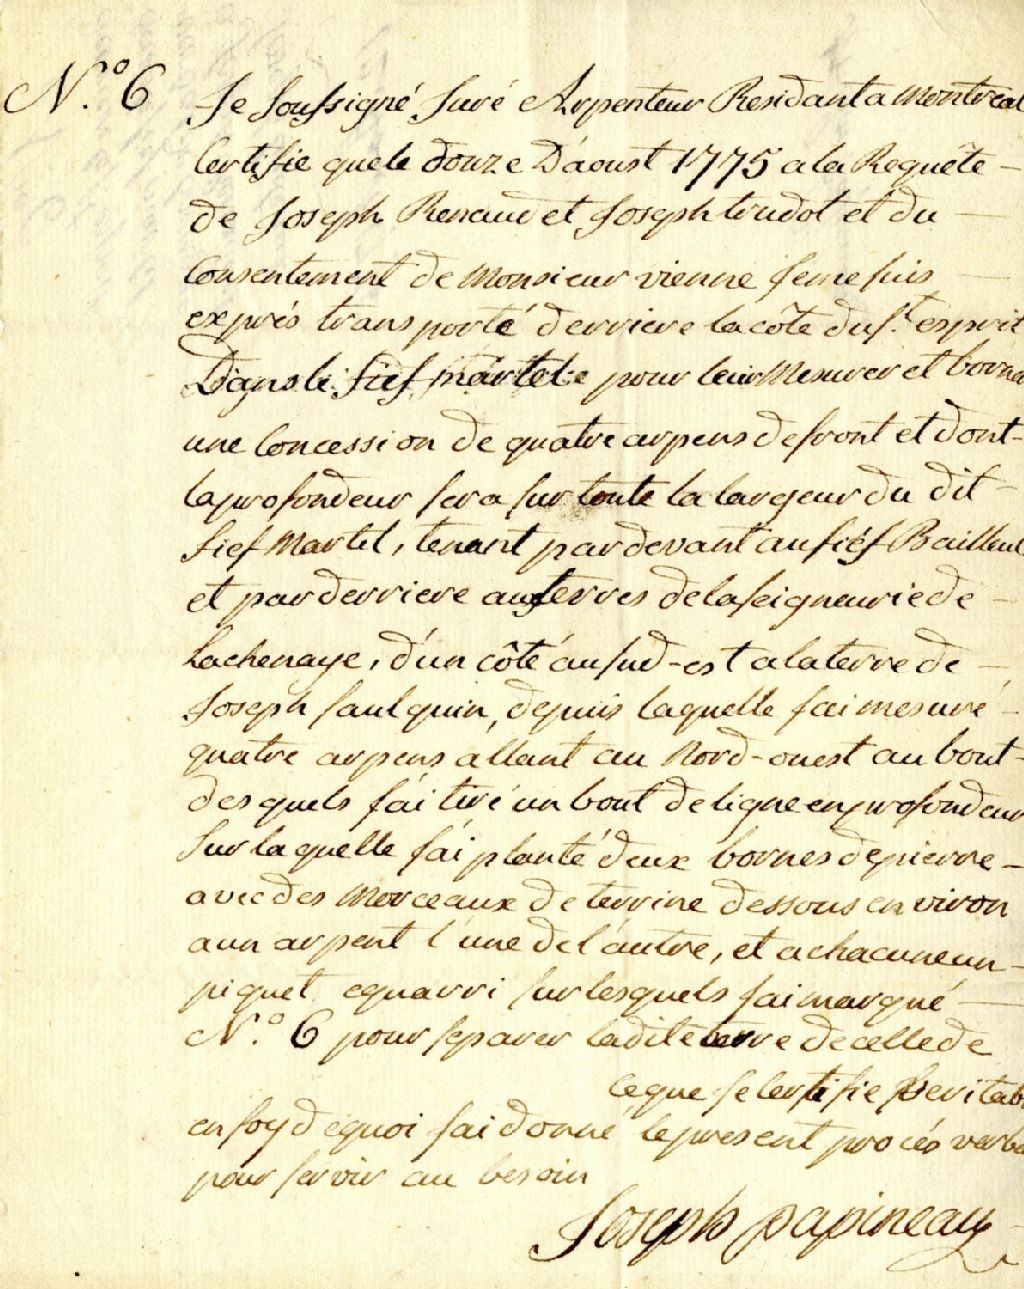 N.° 6 Je soussigné Juré Arpenteur Residant a Montreal
Certifie que le douze D'aoust 1775 a la Requête
de Joseph Renaud et Joseph trudot et du
Consentement de Monsieur vienne Je me suis
exprés transporté derriere la côte du st. esprit
Dans le fief martel pour leur Mesurer et borner
une Concession de quatre arpens de front et dont
la profondeur sera sur toute la largeur du dit
fief Martel, tenant par devant au fiéf Bailleul
et par derriere aux terres de la seigneurie de
Lachenaye, d'un côté au sud-est a la terre de
Joseph saulquin, depuis laquelle J'ai mesuré
quatre arpens allant au Nord-ouest au bout
des quels J'ai tiré un bout de ligne en profondeur
sur la quelle J'ai planté deux bornes de pierre
avec des Morceaux de terrine dessous en viron
a un arpent l'une de l'autre, et a chacune un
piquet equarri sur lesquels J'ai marqué
N.° 6 pour separer ladite terre de celle de
Ceque Je Certifie Veritab
en foy de quoi J'ai donné le present procés verba
pour servir au besoin
Joseph papineau